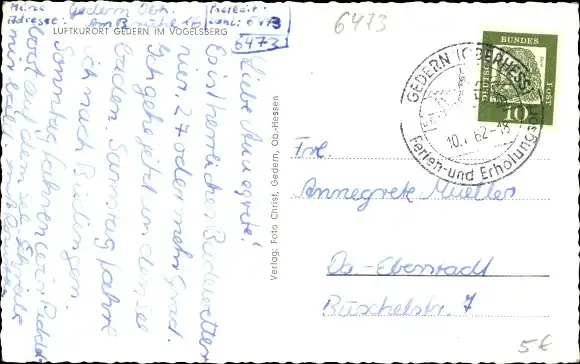 Meine Adresse: Gedern Obh.
am Brühl 10
Postleit-
zahl: 6473
6473
6473
LUFTKURORT GEDERN IM VOGELSBERG
Liebe Annegrete!
Es ist herrliches Badewetter
hier, 27 oder mehr Grad.
Ich gehe jetzt in den See
baden. Samstag fahre
ich nach Büdingen.
Sonntag fahren wir
Boot auf dem See. Schreibe
mir bald
Verlag: Foto Christ, Gedern, Ob.-Hessen
GEDERN (OBERHESS)
10. 62-18
Ferien- und Erholungsort
DEUTSCHE BUNDESPOST
10
Frl.
Annegrete Mueller
Da-Eberstadt
Büschelstr. 7
5€